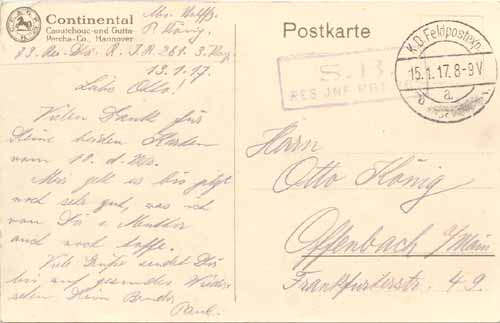 Continental
Caoutchouc- und Gutta-
Percha-Co., Hannover
P. König
83. Res. Div. R. J. R. 261. 3. Komp.
13.1.17.
Lieber Otto!
Vielen Dank für
Deine beiden Karten
vom 10. d. Mts.
Mir geht es bis jetzt
noch sehr gut, was ich
von Dir u. Mutter
auch noch hoffe.
Viele Grüße sendet Dir
bis auf gesundes Wieder-
sehen Dein Bruder
Paul.
Postkarte
S. B.
RES. INF. RGT.
K.D. Feldpostexp.
15.1.17. 8-9 V
a.
Herrn
Otto König
Offenbach a/Main
Frankfurterstr. 49.